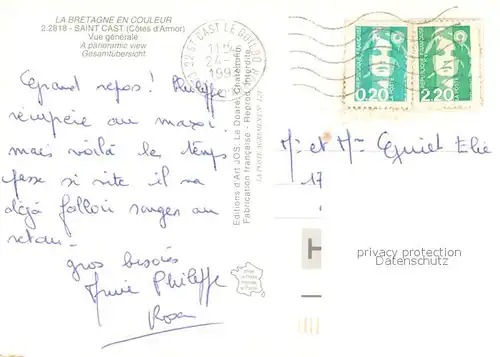 LA BRETAGNE EN COULEUR
2.2818 - SAINT CAST (Côtes d'Armor)
Vue générale
A panoramic view
Gesamtübersicht
Grand repos! Philippe
récupère au maxi.
mais voilà le temps
passe si vite il va
déjà falloir songer au
retour.
gros bisous
Philippe
Rosa
Editions d'Art JOS, Le Doaré, Châteaulin
Fabrication française - Reprod. interdite
22 ST CAST LE GUILDO
0,20
2,20
Mr et Mme Elie
17
privacy protection
Datenschutz